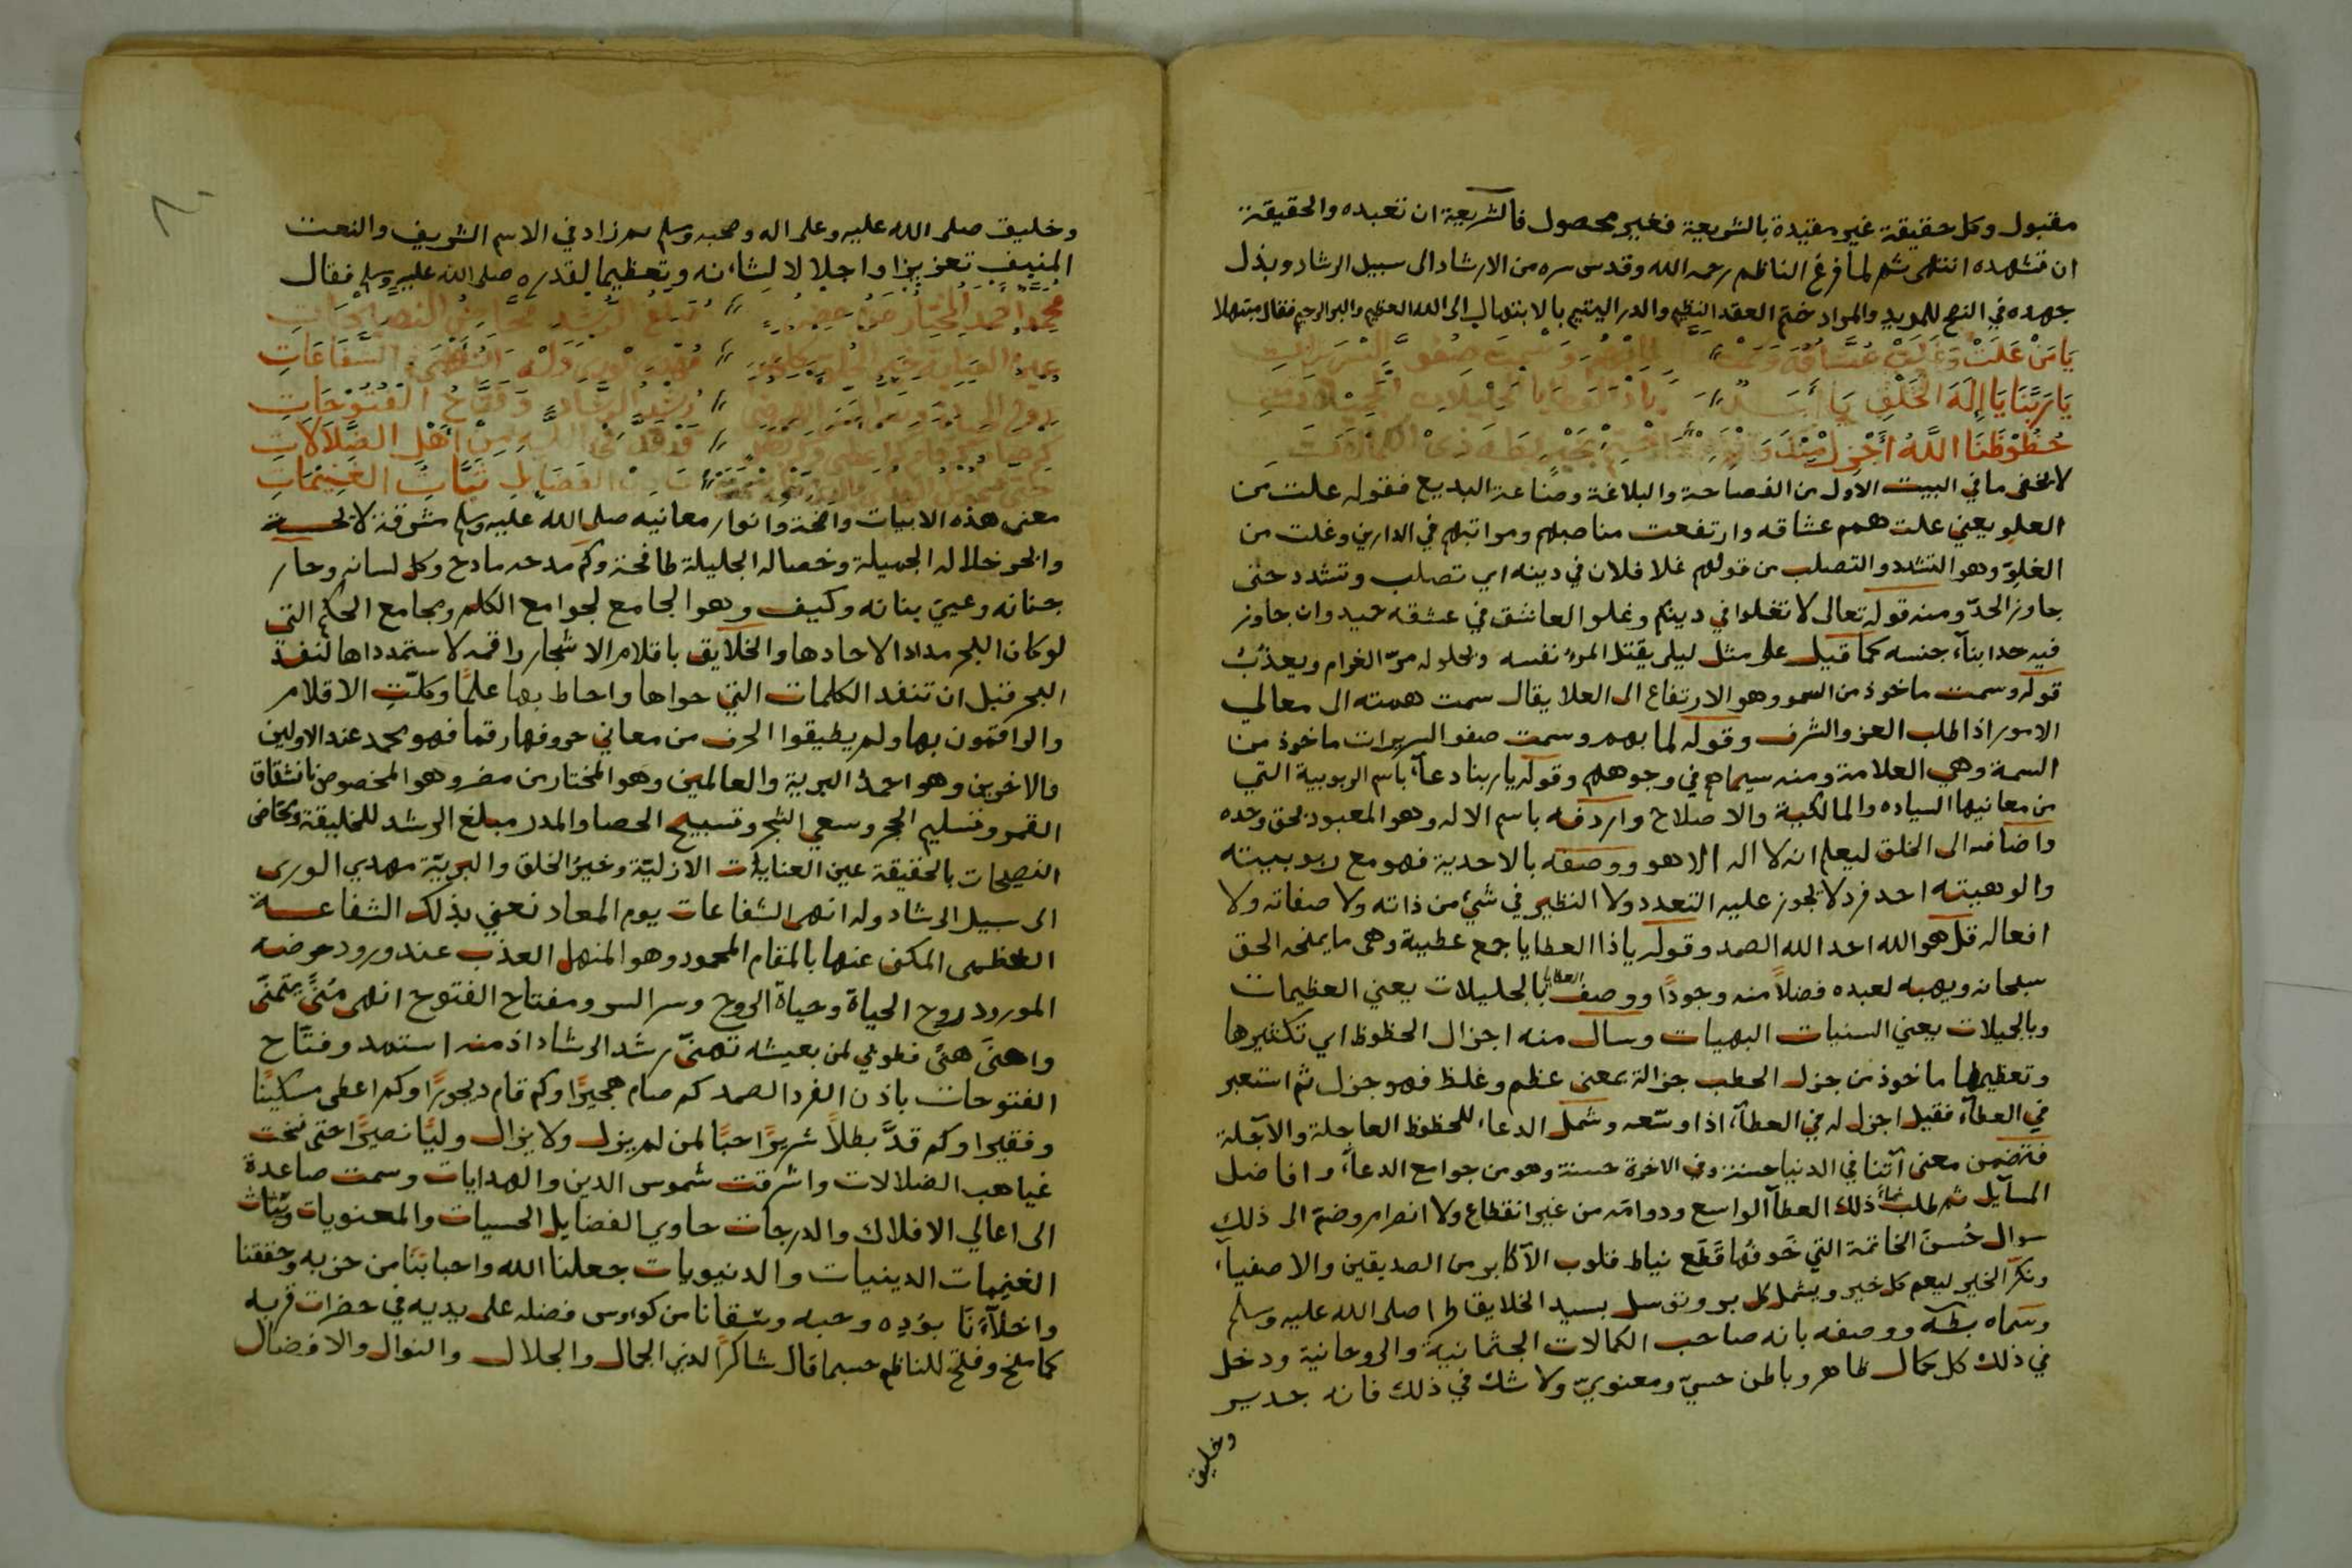 مقبول وكل حقيقة غير مقيدة بالشريعة فغير محصول فالشريعة ان تعبده والحقيقة
ان تشهده انتهى ثم لما فرغ الناظم رحمه الله وقدس سره من الارشاد الى سبيل الرشاد وبذل
جهده في النصح للمريد والمراد ختم العقد النظيم والدر اليتيم بالابتهال الى الله العظيم والبر الرحيم فقال مبتهلا
يَا مَنْ عَلَتْ وَغَلَتْ عُشَّاقُهُ وَسَمَتْ
يَا رَبَّنَا يَا إِلَهَ الخَلْقِ يَا
حُظُوْظَنَا اللَّهُ أَجْزِلْ
لا يخفى ما في البيت الاول من الفصاحة والبلاغة وصناعة البديع فقوله علت من
العلو يعني علت همم عشاقه وارتفعت مناصبهم ومراتبهم في الدارين وغلت من
الغلوّ وهو التشدد والتصلب من قولهم غلا فلان في دينه اي تصلب وتشدد حتى
جاوز الحدّ ومنه قوله تعالى لا تغلوا في دينكم وغلو العاشق في عشقه حميد وان جاوز
فيه حد ابناء جنسه كما قيل على مثل ليلى يقتل المرء نفسه ويحلو له مرّ الغرام ويعذُبُ
قوله وسمت ماخوذ من السمو وهو الارتفاع الى العلا يقال سمت همته الى معالي
الامور اذا طلب العز والشرف وقوله لما بهم وسمت صفو السريرات ماخوذ من
السمة وهي العلامة ومنه سيماهم في وجوههم وقوله يا ربنا دعاء باسم الربوبية التي
من معانيها السياده والمالكية والاصلاح واردفه باسم الاله وهو المعبود بحق وحده
واضافه الى الخلق ليعلم انه لا اله الا هو ووصفه بالاحدية فهو مع ربوبيته
والوهيته احد فرد لا يجوز عليه التعدد ولا النظير في شيء من ذاته ولا صفاته ولا
افعاله قل هو الله احد الله الصمد وقوله يا ذا العطايا جمع عطية وهي ما يمنحه الحق
سبحانه ويهبه لعبده فضلاً منه وجودًا ووصف العطايا بالجليلات يعني العظيمات
وبالجيلات يعني السنيات البهيات وسال منه اجزال الحظوظ اي تكثيرها
وتعظيمها ماخوذ من جزل الحطب جزالة بمعنى عظم وغلظ فهو جزل ثم استعير
في العطاء فقيل اجزل له في العطاء اذا اوسعه وشمل الدعاء للحظوظ العاجلة والآجلة
فتضمن معنى آتنا في الدنيا حسنة وفي الاخرة حسنة وهو من جوامع الدعاء وافاضل
المسآيل ثم طلب نماء ذلك العطآ الواسع ودوامه من غير انقطاع ولا انصرام وضم الى ذلك
سوال حُسن الخاتمة التي خَوفُها قَطَع نياط قلوب الاكابر من الصديقين والاصفياء
ونكّر الخير ليعم كل خير ويشمل كل بر وتوسل بسيد الخلايق طرا صلى الله عليه وسلم
وسماه بطه ووصفه بانه صاحب الكمالات الجثمانية والروحانية ودخل
في ذلك كل كمال ظاهر وباطن حسيّ ومعنويّ ولا شك في ذلك فانه جدير
وخليق
٨٠
وخليق صلى الله عليه وعلى اله وصحبه وسلم ثم زاد في الاسم الشريف والنعت
المنيف تعزيزا واجلالا لشانه وتعظيما لقدره صلى الله عليه وسلم فقال
مُحمد احمد المختار من مضر مبلغ الرُّشد محّاض النصيحات
عين العناية خير الخلق الشَّفَاعَاتِ
رُشد الرشاد وفتّاح الفُتُوْحَاتِ
أَهْلِ الضَّلَالَاتِ
الغَنِيْمَاتِ
معنى هذه الابيات واضحة وانوار معانيه صلى الله عليه وسلم مشرقة لائحسة
وانحو خلاله الجميلة وخصاله الجليلة طافحة وكم مدحه مادح وكل لسانه وحار
جنانه وعيي بنانه وكيف وهو الجامع لجوامع الكلم ومجامع الحكم التي
لو كان البحر مدادا لاحادها والخلايق باقلام الاشجار راقمه لاستمدادها لنفد
البحر قبل ان تنفد الكلمات التي حواها واحاط بها علمًا وكلّت الاقلام
والراقمون بها ولم يطيقوا الحرف من معاني حروفها رقما فهو محمد عند الاولين
والاخرين وهو احمدُ البرية والعالمين وهو المختار من مضر وهو المخصوص بانشقاق
القمر وتسليم الحجر وسعي الشجر وتسبيح الحصا والمدر مبلغ الرشد للخليقة ومحّاض
النصيحات بالحقيقة عين العنايات الازليّة وخير الخلق والبريّة مهدي الورى
الى سبيل الرشاد وله انهى الشفاعات يوم المعاد نعني بذلك الشفاعسة
العظمى المكنى عنها بالمقام المحمود وهو المنهل العذب عند ورود حوضه
المورود روح الحياة وحياة الروح وسر السر ومفتاح الفتوح انهى مُنىً يتمنَّى
واهنى هنئ فطوبي لمن بعيشه تهنّى رشد الرشاد اذ منه استمد وفتّاح
الفتوحات باذن الفرد الصمد كم صام هجيرًا وكم قام ديجورًا وكم اعطى مسكينًا
وفقيرا وكم قدَّ بطلاً شريرًا حبًا لمن لم يزل ولا يزال وليًا نصيرًا حتى نخت
غياهب الضلالات واشرقت شموس الدين والهدايات وسمت صاعدة
الى اعالي الافلاك والدرجات حاوي الفضايل الحسيات والمعنويات وبّتات
الغنيمات الدينيات والدنيويات جعلنا الله واحبابنا من حزبه وحققنا
واخلآءنا بوُدِه وحبه وسقانا من كوؤس فضله على يديه في حضرات قربه
كما منح وفتح للناظم حسبما قال شاكرًا لذي الجمال والجلال والنوال والافضال